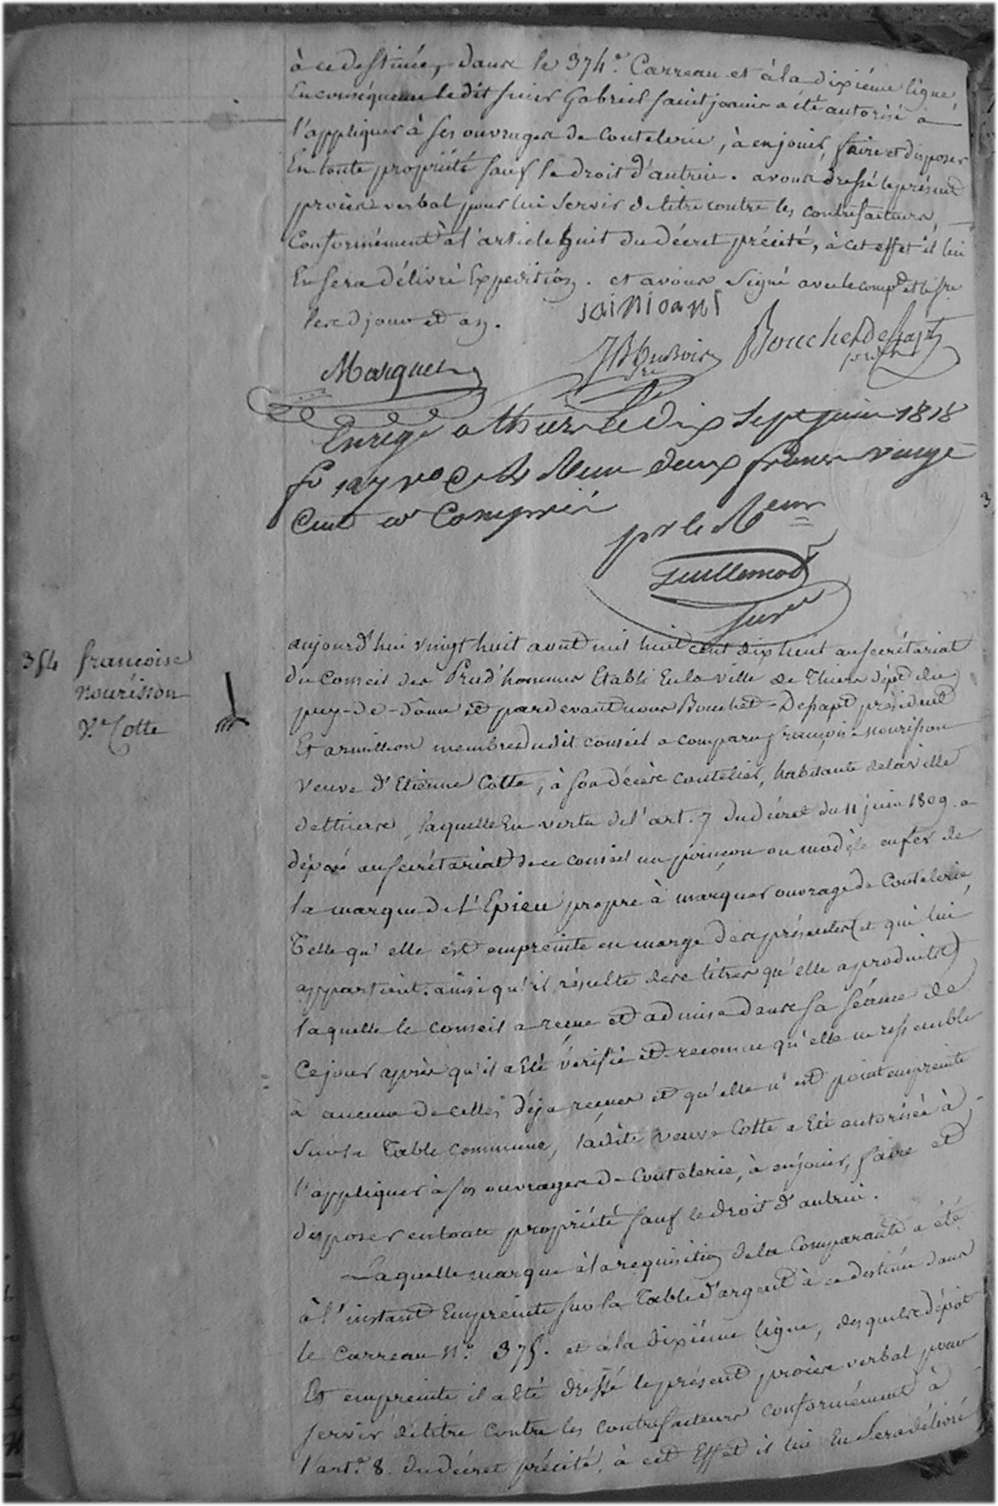 à ce destinée, dans le 374e. Carreau et à la dixiéme ligne
En conséquence le dit sieur Gabriel saint joanis a été autorisé a
l'appliquer à ses ouvrages de coutelerie, à en jouir, faire et disposer
En toute propriété sauf le droit d'autrui. avons dressé le présent
procès verbal pour lui servir de titre contre les contrefacteurs
Conformément à l'article huit du décret précité, à cet effet il lui
En sera délivré Expedition. et avons signé avec le comp.t et le sre
les d jour et an.
sainioant
Marquet
JB Dubois
sre
Bouchet Desapt
president
Enregé a thiers le dix sept juin 1818
fo 127 vo Reçu deux francs vingt
Cent es Compris
pr le Reur
Guillemot
Suree
354 francoise
nourisson
Ve. Cotte
aujourd'hui vingt huit aout mil huit cent dix huit au secrétariat
du Conseil des Prud'hommes Etabli En la ville de Thiers dépt du
puy-de-dôme et pardevant nous Bouchet-Desapt président
Et armillion membre dudit conseil a comparu françoise nourisson
veuve d'Etienne Cotte, à son décès coutelier, habitante de la ville
de thiers, laquelle En vertu de l'art. 7 du décret du 11 juin 1809. a
déposé au secrétariat de ce conseil un poinçon ou modèle en fer de
la marque de L'Epieu propre à marquer ouvrage de Coutelerie,
Telle qu'elle est empreinte en marge des présentes (et qui lui
appartient. ainsi qu'il résulte des titres qu'elle a produits)
laquelle le conseil a recue et admise dans sa séance de
Ce jour après qu'il a été vérifié et reconnu qu'elle ne ressemble
à aucune de celles déja reçues et qu'elle n'est point empreinte
sur la Table commune, ladite veuve Cotte a été autorisée à
l'appliquer à ses ouvrages de Coutelerie, à en jouir, faire et
disposer en toute propriété sauf le droit d'autrui.
Laquelle marque à la requisition de la Comparante a été
à l'instant Empreinte sur la Table d'argent à ce destinée dans
le carreau No. 375. et à la dixiéme ligne, desquels dépôt
Et empreinte il a été dressé le présent procès verbal pour
servir de titre contre les contrefacteurs conformément à
l'art. 8. du décret précité, à cet Effet il lui En sera délivré